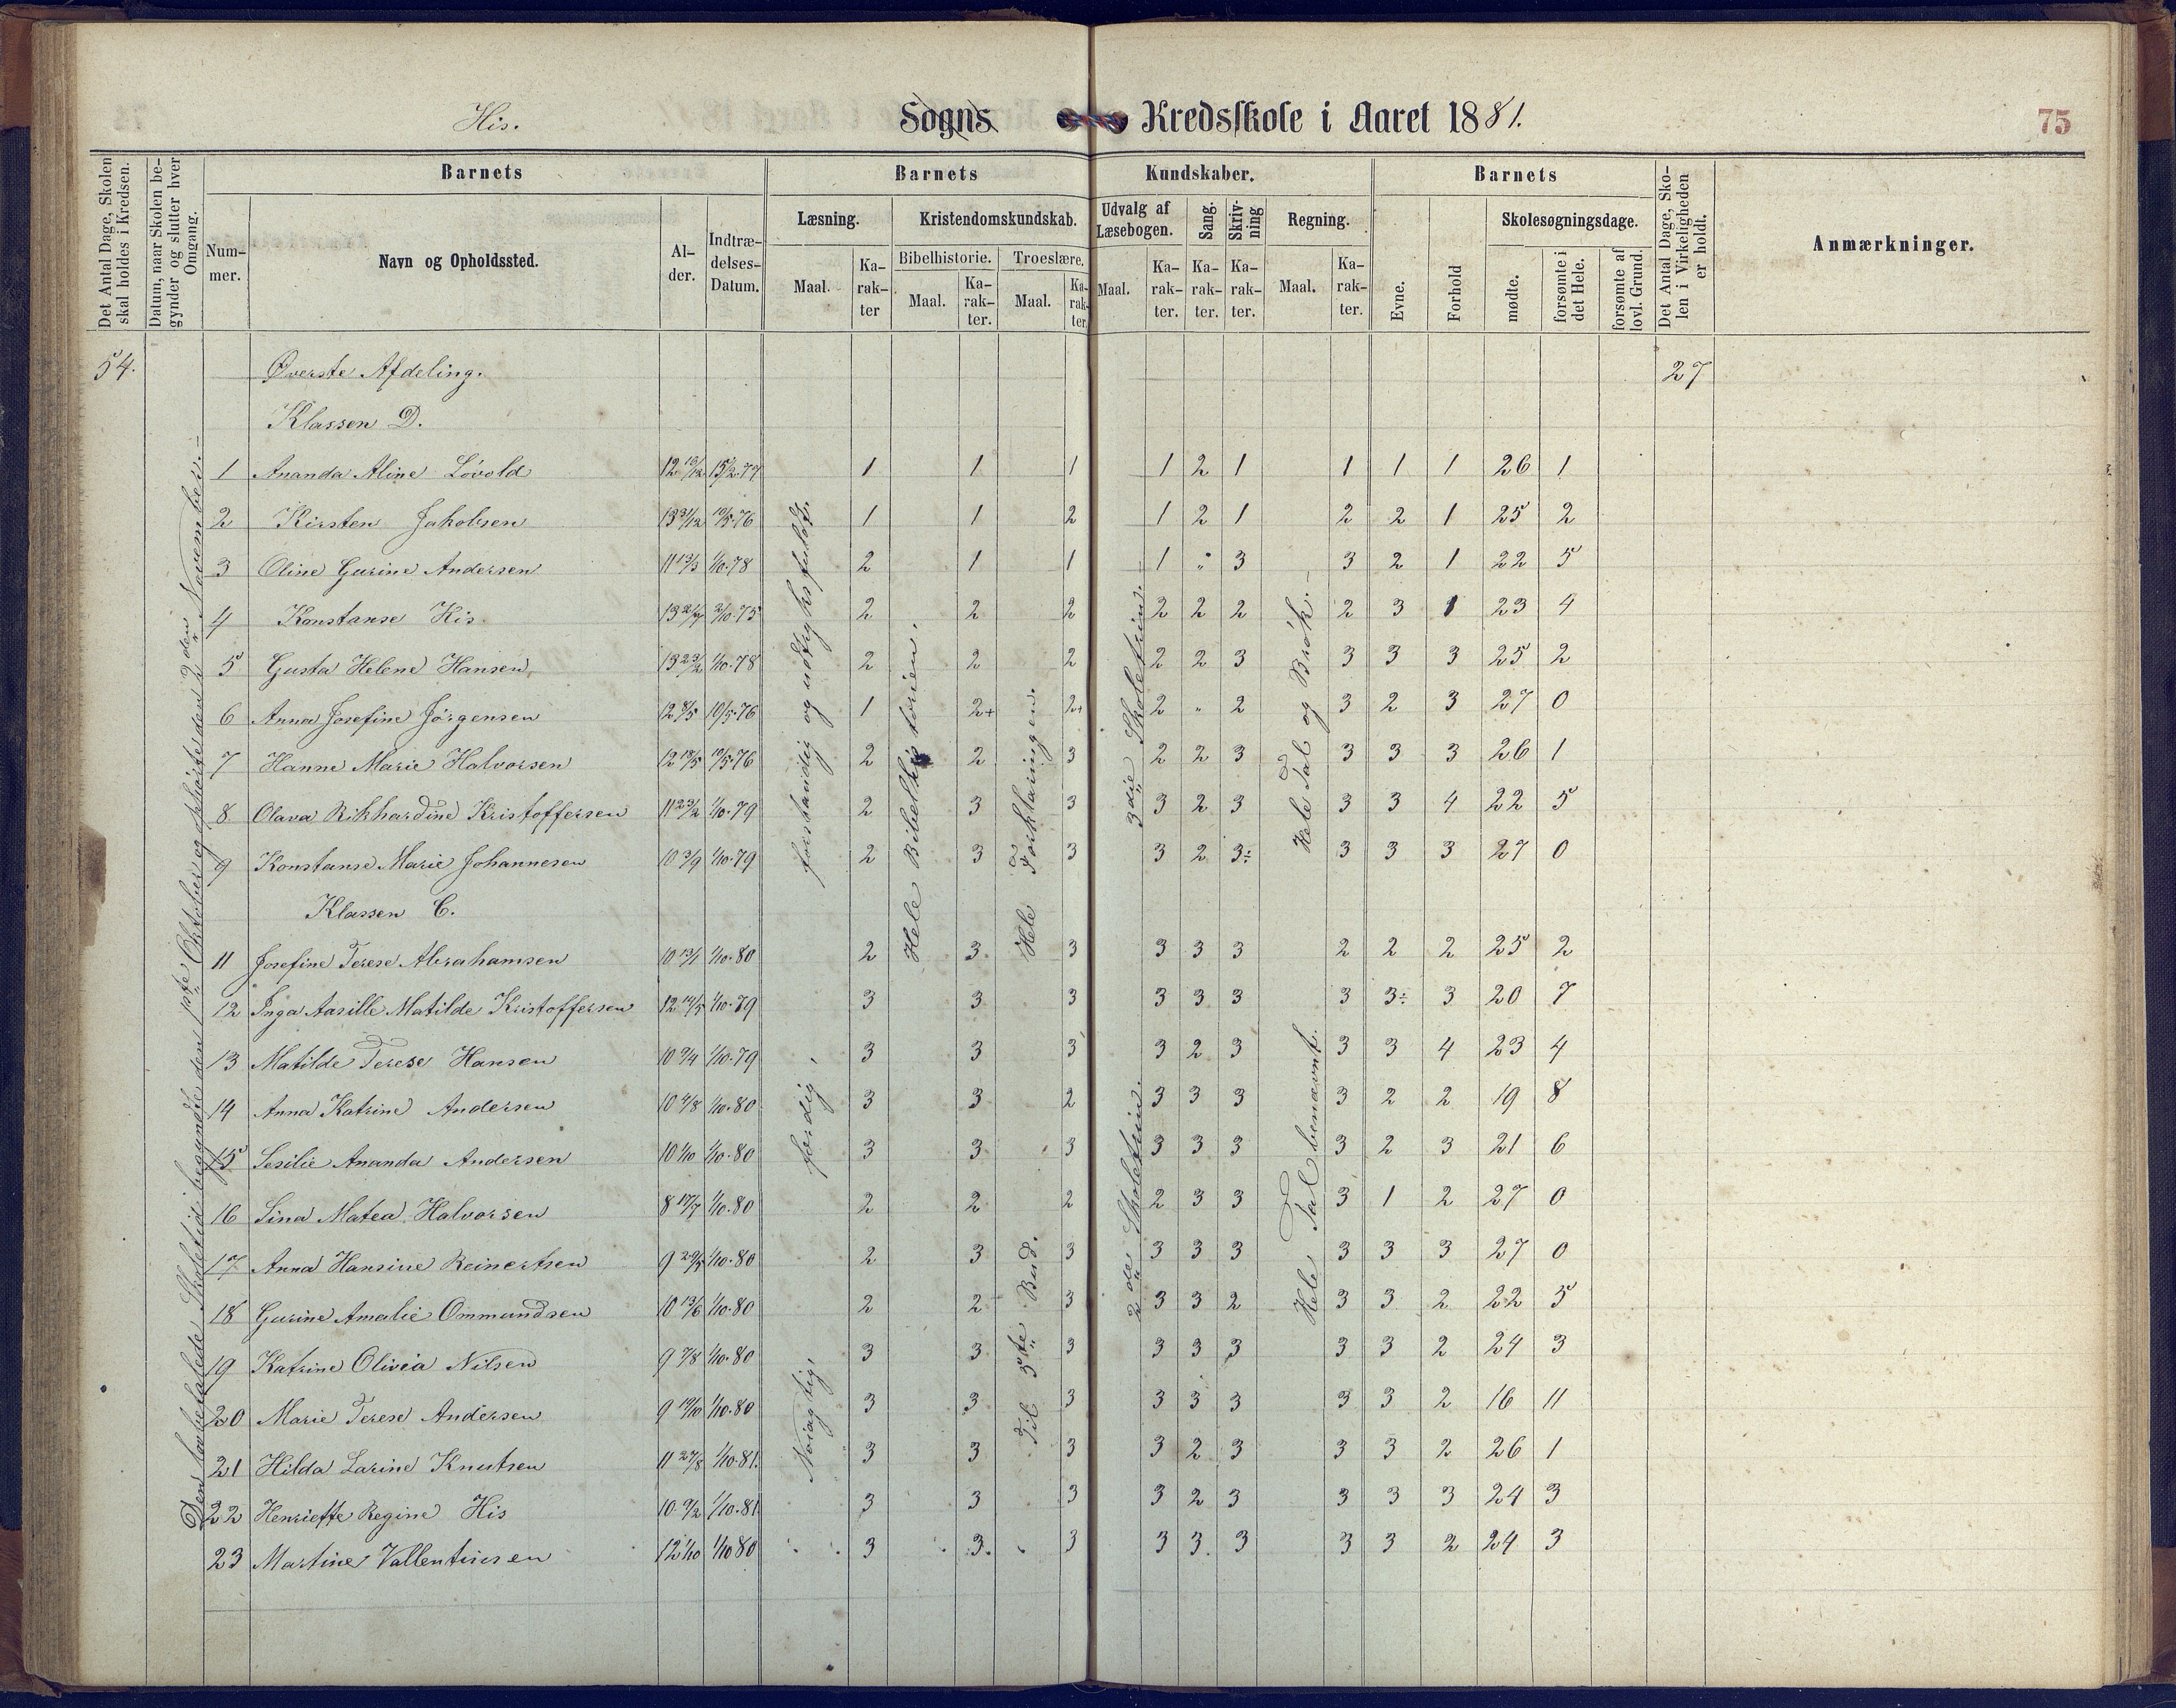 His. Sogns Kredsskole i Aaret 1881. 75
Det Antal Dage, Skolen skal holdes i Kredsen.
Datum, naar Skolen begynder og slutter hver Omgang.
Barnets
Nummer.
Navn og Opholdssted.
Alder.
Indtrædelses-Datum.
Barnets Kundskaber.
Læsning.
Maal.
Karakter
Kristendomskundskab.
Bibelhistorie.
Maal.
Karakter.
Troeslære.
Maal.
Karakter.
Udvalg af Læsebogen.
Maal.
Karakter.
Sang.
Karakter.
Skrivning
Karakter.
Regning.
Maal.
Karakter.
Barnets
Evne.
Forhold
Skolesøgningsdage.
mødte.
forsømte i det Hele.
forsømte af lovl. Grund.
Det Antal Dage, Skolen i Virkeligheden er holdt.
Anmærkninger.
54. Øverste Afdeling. 27
Klassen D.
1 Ananda Aline Lövold 12 10/12 15/2.77 1 1 1 1 2 1 1 1 1 26 1
2 Kirsten Jakobsen 13 31/12 10/5.76 1 1 2 1 2 1 2 2 1 25 2
3 Oline Gurine Andersen 11 13/3 1/10.78 2 1 1 1 " 3 3 2 1 22 5
4 Konstanse His 2/10.75 2 2 2 2 2 2 2 3 1 23 4
5 Gusta Helene Hansen 13 23/2 1/10.78 2 2 2 2 2 3 3 3 3 25 2
6 Anna Josefine Jörgensen 12 8/5 10/5.76 1 2+ 2+ 2 " 2 3 2 3 27 0
7 Hanne Marie Halvorsen 12 18/5 10/5.76 2 2 3 2 2 3 3 3 3 26 1
8 Olava Rikhardine Kristoffersen 11 23/2 1/10.79 2 3 3 3 2 3 3 3 4 22 5
9 Konstanse Marie Johannesen 10 3/9 1/10.79 2 3 3 3 2 3÷ 3 3 3 27 0
Klassen C.
11 Josefine Terese Abrahamsen 10 13/1 1/10.80 2 3. 3 3 3 3 2 2 2 25 2
12 Inga Aasille Matilde Kristoffersen 12 14/5 1/10.79 3 3 3 3 3 3 3 3÷ 3 20 7
13 Matilde Terese Hansen 10 9/4 1/10.79 3 3 3 3 2 3 3 3 4 23 4
14 Anna Katrine Andersen 10 4/8 1/10.80 3 3 2 3 3 3 3 2 2 19 8
15 Sesilie Ananda Andersen 10 1/10 1/10.80 3 3 3 3 3 3 3 2 3 21 6
16 Sina Matea Halvorsen 8 17/7 1/10.80 2 2 2 2 3 3 3 1 2 27 0
17 Anna Hansine Reinertsen 9 29/5 1/10.80 2 3 3 3 3 3 3 3 3 27 0
18 Gurine Amalie Ommundsen 10 13/6 1/10.80 2 2 3 3 3 2 3 3 2 22 5
19 Katrine Olivia Nilsen 9 7/8 1/10.80 3 3 3 3 3 3 3 3 2 24 3
20 Marie Terese Andersen 9 19/10 1/10.80 3 3 3 3 3 3 3 3 2 16 11
21 Hilda Larine Knutsen 11 27/8 1/10.81. 3 3 3 3 2 3 3 3 2 26 1
22 Henriette Regine His 10 9/2 1/10.81 3 3 3 3 2 3 3 3 3 24 3
23 Martine Vallentinsen 12 1/10 1/10 80 3 3. 3 3 3. 3 3 3 2 24 3
Den lovbefalede Skoletid begyndte den 1ste Oktober og ophörte den 2den November. –
forstandig og udtryksfuldt.
færdig,
Nöiagtig,
Hele Bibelhistorien.
Hele Forklaringen.
Til 5te Bud.
3die Skoletrin. –
2de Skoletrin.
Hele Tal og Brök. –
Hele Tal benævnt.